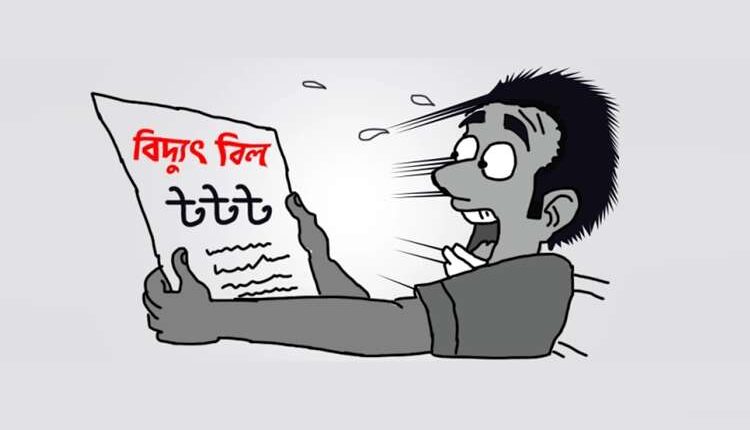 বিদ্যুৎ বিল
৳৳৳